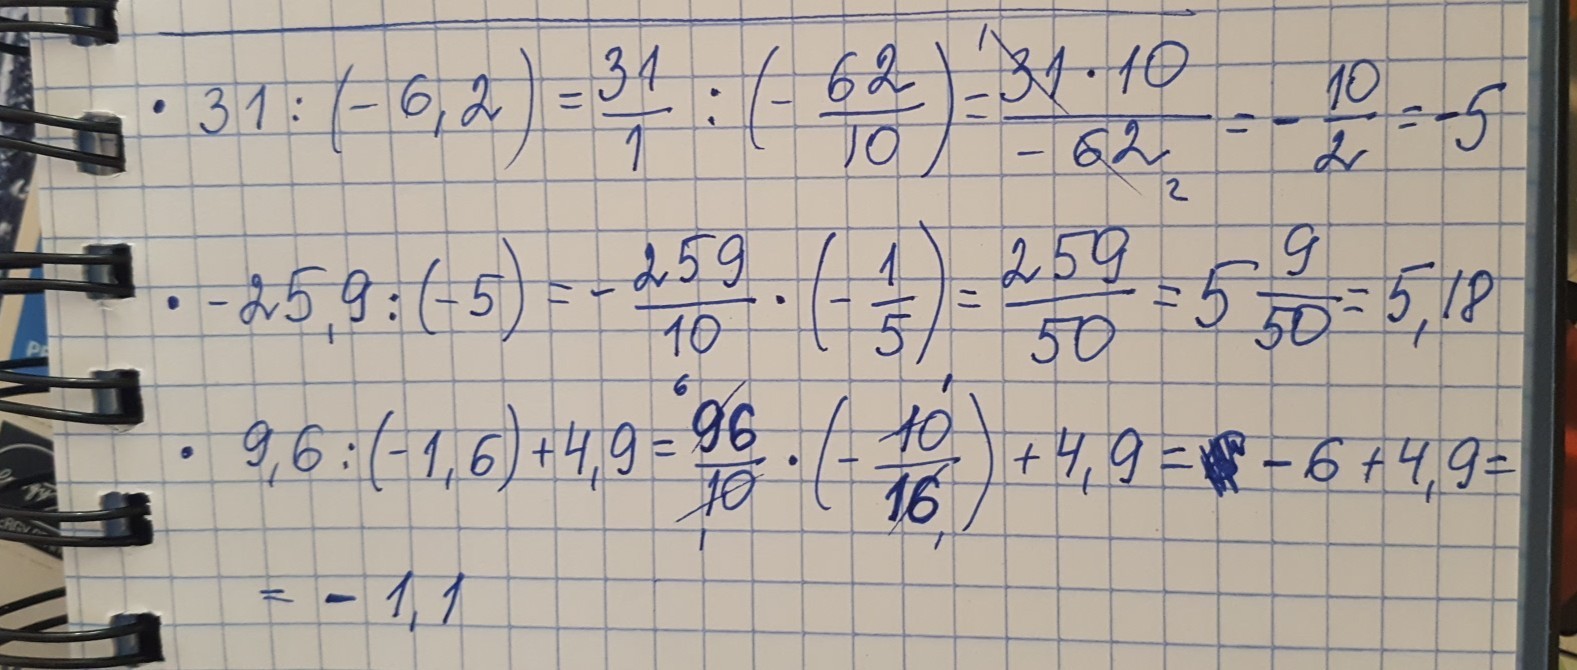 • 31 : (- 6,2) = 31/1 : (- 62/10) = 31 · 10/- 62 = - 10/2 = -5
• -25,9 : (-5) = - 259/10 · (- 1/5) = 259/50 = 5 9/50 = 5,18
• 9,6 : (-1,6) + 4,9 = 96/10 · (- 10/16) + 4,9 = - 6 + 4,9 =
= - 1,1